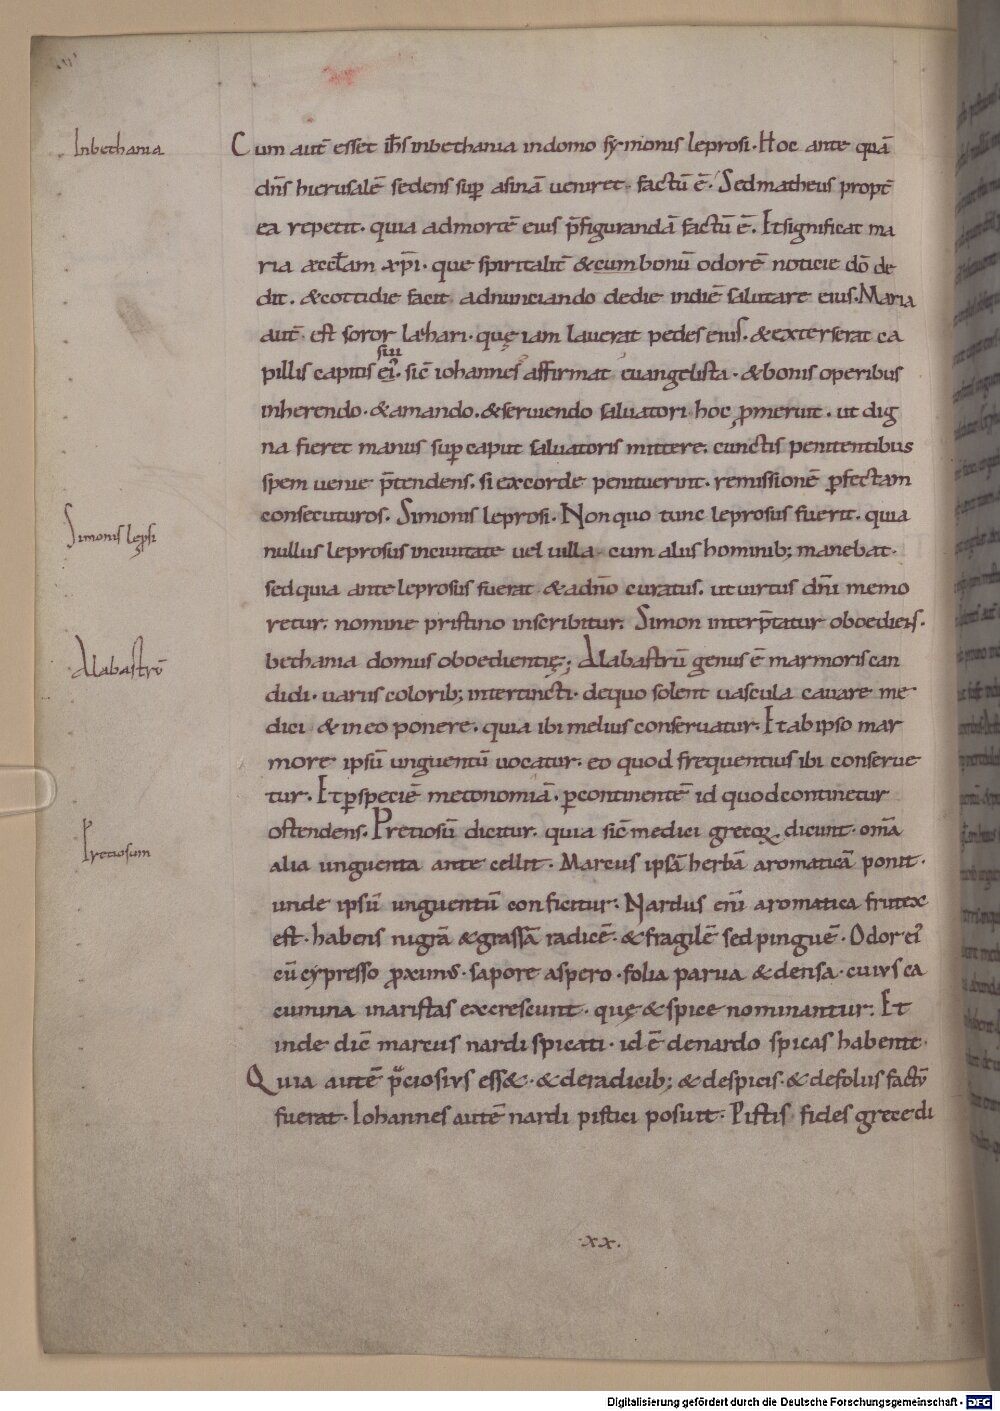 Inbethania
Cum autē esset ih̄s inbethania indomo symonis leprosi. Hoc ante quā
dn̄s hierusalē sedens sup asinā ueniret. factū ē. Sed matheus propt̄
ea repetit. quia admortē eius p̄figurandā factū ē. Et significat ma
ria æccl̄am xp̄i. que spiritalit̄ & cum bonū odorē noticie dō de
dit. & cottidie facit adnunciando dedie indiē salutare eius. Maria
aut̄ est soror lazhari. quę iam lauerat pedes eius. & exterserat ca
sui
pillis capitis ei'. sic̄ iohannes affirmat euangelista. & bonis operibus
inherendo. & amando. & seruiendo saluatori hoc pmeruit. ut dig
na fieret manus sup caput saluatoris mittere. cunctis penitentibus
spem uenie p̄tendens. si excorde penituerint. remissionē pfectam
consecuturos. Simonis leprosi. Non quo tunc leprosus fuerit. quia
Simonis lepsi
nullus leprosus inciuitate uel uilla cum aliis hominib; manebat.
sed quia ante leprosus fuerat & adn̄o curatus. ut uirtus dn̄i memo
retur. nomine pristino inscribitur. Simon interp̄tatur oboediens.
bethania domus oboedientię; Alabastrū genus ē marmoris can
Alabastrū
didi. uariis colorib; intertincti. dequo solent uascula cauare me
dici & in eo ponere. quia ibi melius conseruatur. Et ab ipso mar
more ipsū unguentū uocatur. eo quod frequentius ibi conserue
tur. Et p speciē metonomiā. p continentē id quod continetur
ostendens. Pretiosū dicitur. quia sic̄ medici grecoꝝ dicunt. om̄a
Pretiosum
alia unguenta ante cellit. Marcus ipsā herbā aromaticā ponit.
unde ipsū unguentū conficitur. Nardus eni aromatica frutex
est. habens nigrā & grassā radicē. & fragilē sed pinguē. Odor ei'
cū cypresso proximus. sapore aspero. folia parua & densa. cuius ca
cumina inaristas excrescunt. quę & spice nominantur. Et
inde dic̄ marcus nardi spicati. id ē denardo spicas habente.
Quia autē p̄ciosius ess&. & deradicib; & despicis. & defoliis factū
fuerat. Iohannes autē nardi pistici posuit. Pistis fides grece di
.xx.
Digitalisierung gefördert durch die Deutsche Forschungsgemeinschaft - DFG